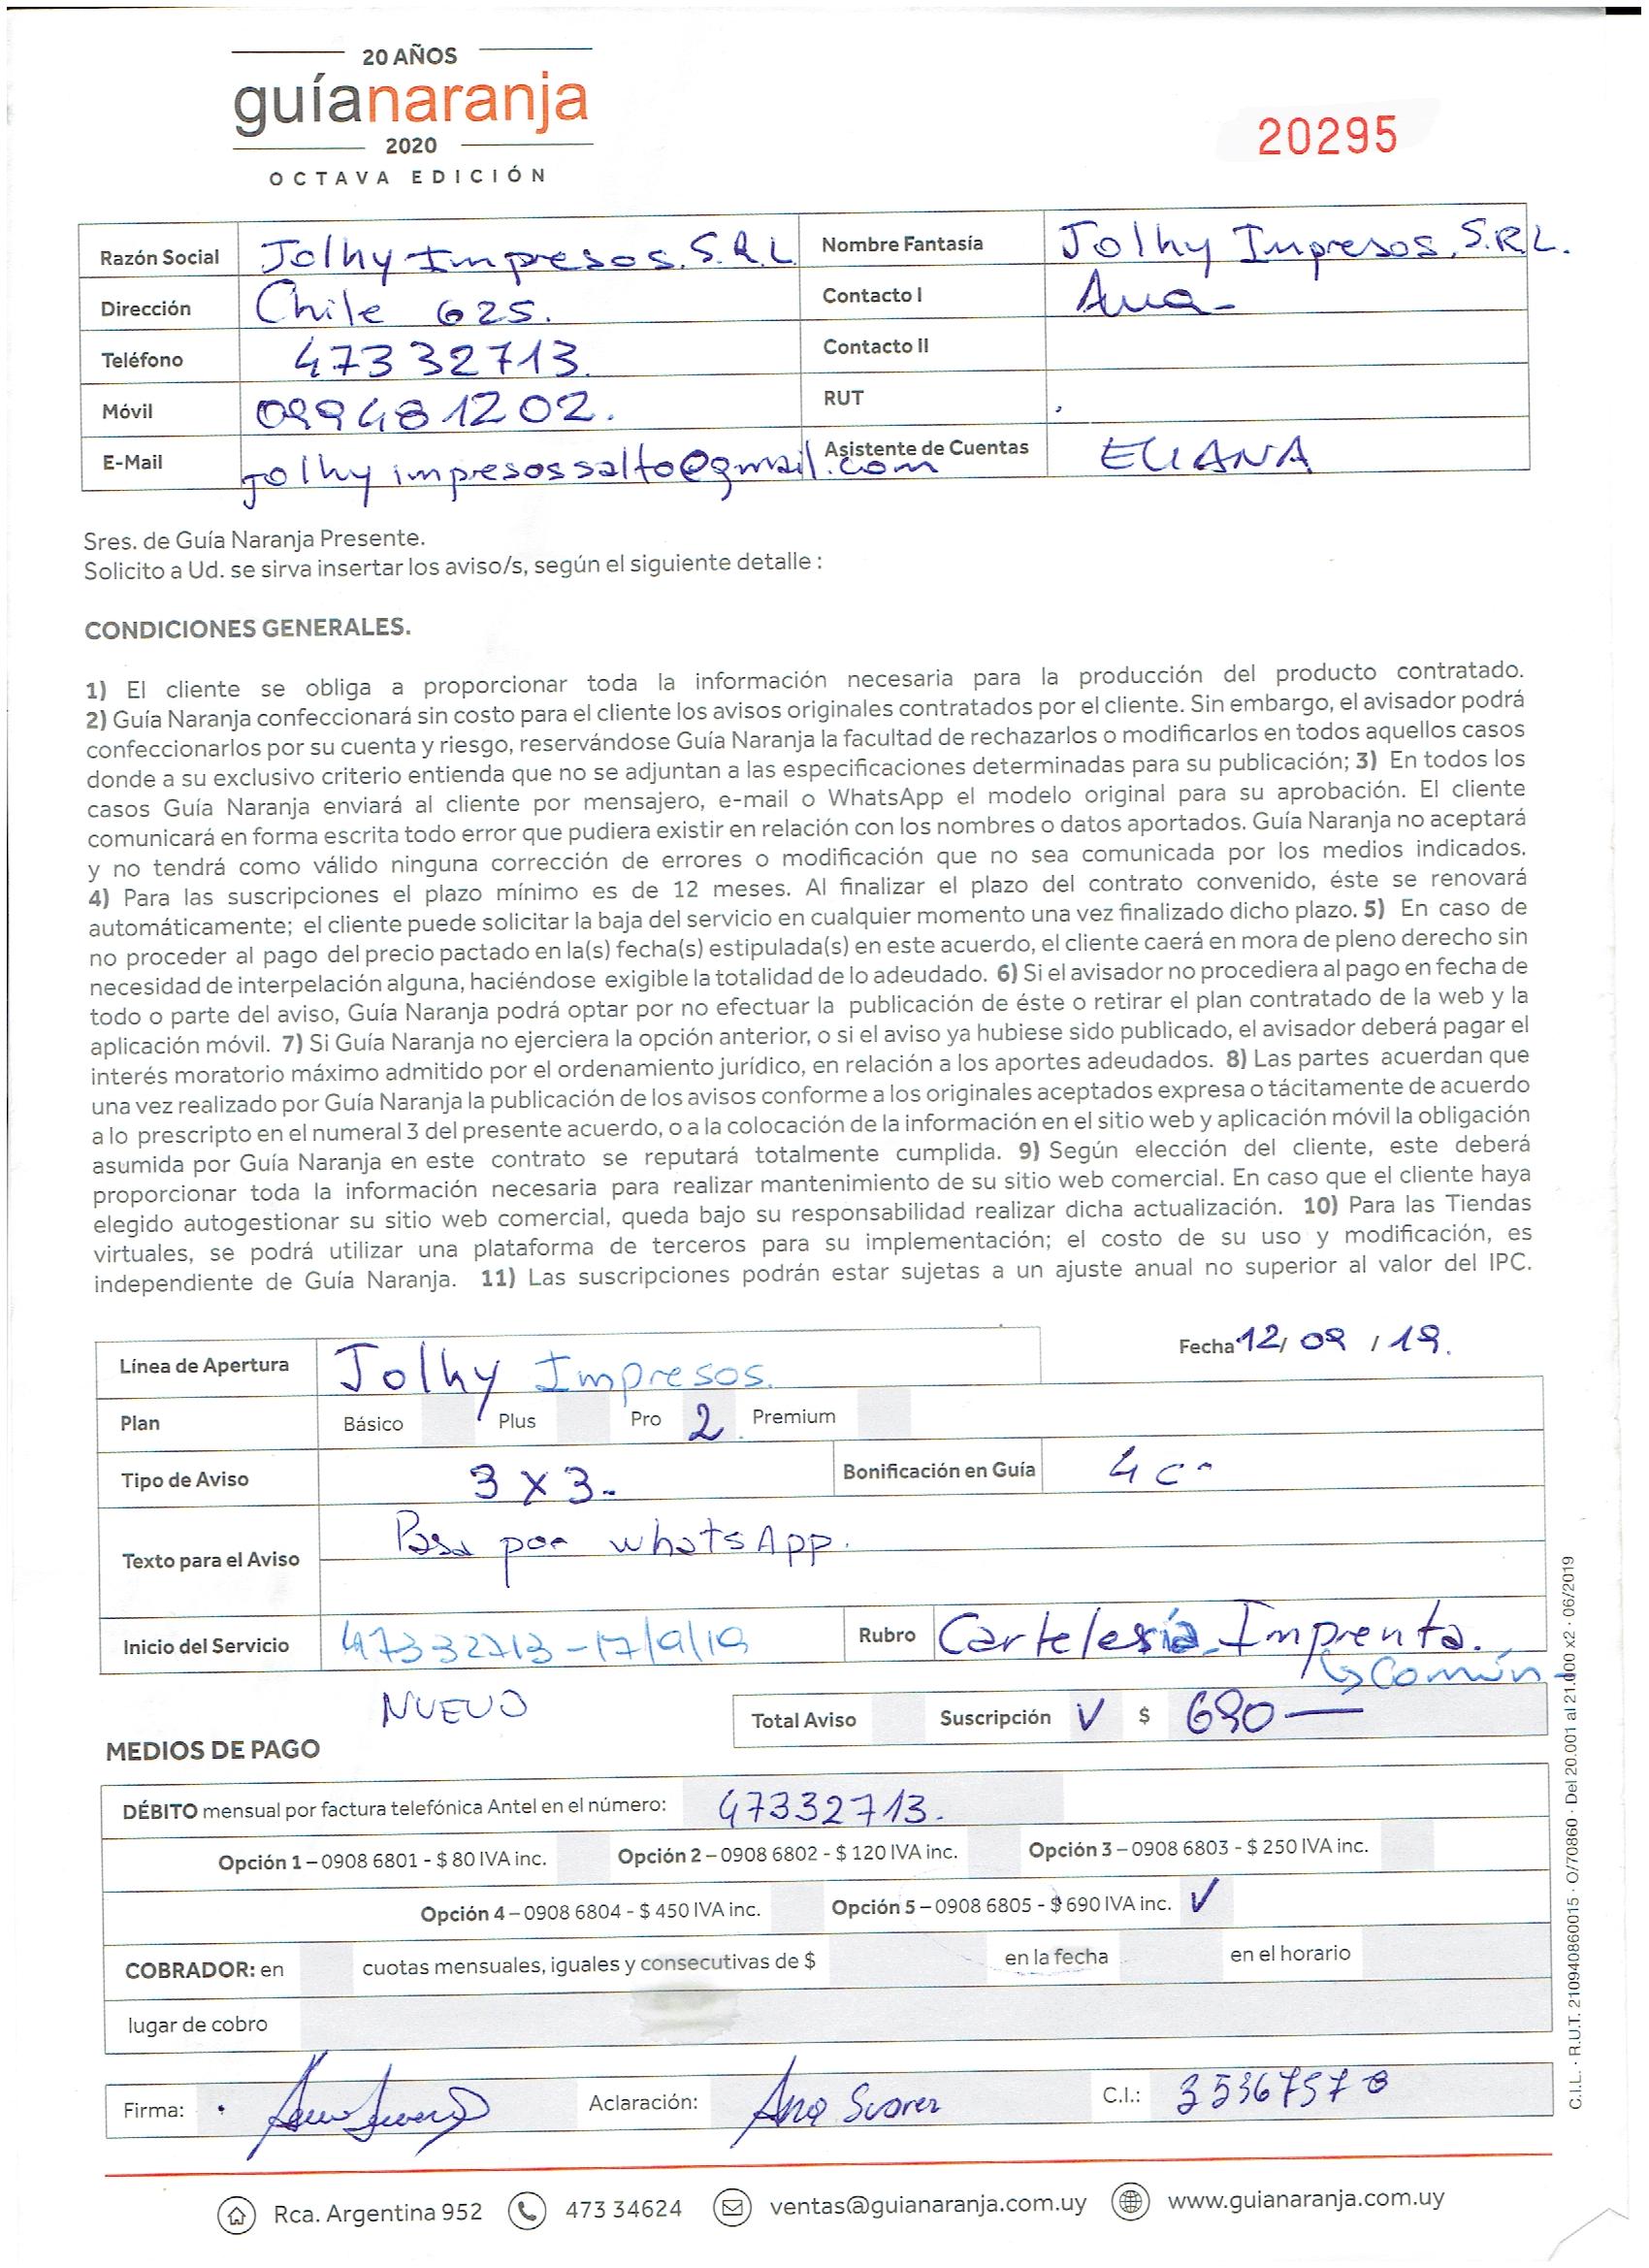 20 AÑOS
guíanaranja
2020
OCTAVA EDICIÓN
20295
Razón Social Jolhy Impresos. S.R.L Nombre Fantasía Jolhy Impresos. S.R.L.
Dirección Chile 625. Contacto I Ana-
Teléfono 47332713. Contacto II
Móvil 099481202. RUT
E-Mail jolhyimpresossalto@gmail.com Asistente de Cuentas ELIANA
Sres. de Guía Naranja Presente.
Solicito a Ud. se sirva insertar los aviso/s, según el siguiente detalle :
CONDICIONES GENERALES.
1) El cliente se obliga a proporcionar toda la información necesaria para la producción del producto contratado.
2) Guía Naranja confeccionará sin costo para el cliente los avisos originales contratados por el cliente. Sin embargo, el avisador podrá
confeccionarlos por su cuenta y riesgo, reservándose Guía Naranja la facultad de rechazarlos o modificarlos en todos aquellos casos
donde a su exclusivo criterio entienda que no se adjuntan a las especificaciones determinadas para su publicación; 3) En todos los
casos Guía Naranja enviará al cliente por mensajero, e-mail o WhatsApp el modelo original para su aprobación. El cliente
comunicará en forma escrita todo error que pudiera existir en relación con los nombres o datos aportados. Guía Naranja no aceptará
y no tendrá como válido ninguna corrección de errores o modificación que no sea comunicada por los medios indicados.
4) Para las suscripciones el plazo mínimo es de 12 meses. Al finalizar el plazo del contrato convenido, éste se renovará
automáticamente; el cliente puede solicitar la baja del servicio en cualquier momento una vez finalizado dicho plazo. 5) En caso de
no proceder al pago del precio pactado en la(s) fecha(s) estipulada(s) en este acuerdo, el cliente caerá en mora de pleno derecho sin
necesidad de interpelación alguna, haciéndose exigible la totalidad de lo adeudado. 6) Si el avisador no procediera al pago en fecha de
todo o parte del aviso, Guía Naranja podrá optar por no efectuar la publicación de éste o retirar el plan contratado de la web y la
aplicación móvil. 7) Si Guía Naranja no ejerciera la opción anterior, o si el aviso ya hubiese sido publicado, el avisador deberá pagar el
interés moratorio máximo admitido por el ordenamiento jurídico, en relación a los aportes adeudados. 8) Las partes acuerdan que
una vez realizado por Guía Naranja la publicación de los avisos conforme a los originales aceptados expresa o tácitamente de acuerdo
a lo prescripto en el numeral 3 del presente acuerdo, o a la colocación de la información en el sitio web y aplicación móvil la obligación
asumida por Guía Naranja en este contrato se reputará totalmente cumplida. 9) Según elección del cliente, este deberá
proporcionar toda la información necesaria para realizar mantenimiento de su sitio web comercial. En caso que el cliente haya
elegido autogestionar su sitio web comercial, queda bajo su responsabilidad realizar dicha actualización. 10) Para las Tiendas
virtuales, se podrá utilizar una plataforma de terceros para su implementación; el costo de su uso y modificación, es
independiente de Guía Naranja. 11) Las suscripciones podrán estar sujetas a un ajuste anual no superior al valor del IPC.
Fecha 12/ 09 / 19.
Línea de Apertura Jolhy Impresos.
Plan Básico Plus Pro 2 Premium
Tipo de Aviso 3 x 3- Bonificación en Guía 4 c-
Texto para el Aviso Pasa por whatsApp.
Inicio del Servicio 47332713-17/9/19 Rubro Cartelesía Imprenta.
↳ Común-
NUEVO
Total Aviso Suscripción ✓ $ 690—
MEDIOS DE PAGO
DÉBITO mensual por factura telefónica Antel en el número: 47332713.
Opción 1 – 0908 6801 - $ 80 IVA inc. Opción 2 – 0908 6802 - $ 120 IVA inc. Opción 3 – 0908 6803 - $ 250 IVA inc.
Opción 4 – 0908 6804 - $ 450 IVA inc. Opción 5 – 0908 6805 - $ 690 IVA inc. ✓
COBRADOR: en cuotas mensuales, iguales y consecutivas de $ en la fecha en el horario
lugar de cobro
Firma: Aclaración: Ana Suarez C.I.: 35367578
C.I.L. · R.U.T. 210940860015 · O/70860 · Del 20.001 al 21.000 x2 · 06/2019
Rca. Argentina 952 473 34624 ventas@guianaranja.com.uy www.guianaranja.com.uy